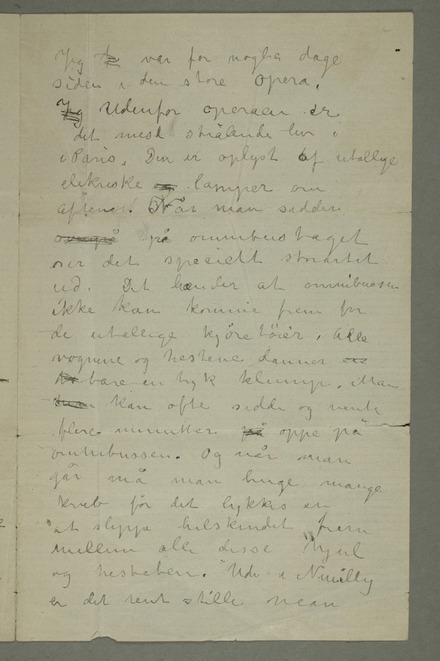 Jeg var for nogle dage
siden i den store opera.
Jeg Udenfor operaen er
det mest strålende liv i
i Paris. Den er oplyst af utallige
elektriske lamper om
aftenen. Når man sidder
på omnibustaget
ser det specielt storartet
ud. Det hænder at omnibussen
ikke kan komme frem for
de utallige kjøretøier. Alle
vognene og hestene danner
bare en tyk klump. Man
kan ofte sidde og vente
flere minutter på oppe på
omnibussen. Og når man
går må man bruge mange
kneb før det lykkes en
at slippe helskindet frem
mellem alle disse hjul
og hesteben. Ude i Neuilly
er det rent stille men